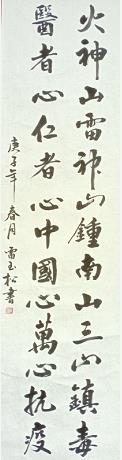 火神山雷神山鍾南山三山鎮毒
醫者心仁者心中國心萬心抗疫
庚子年 春月 雷玉松書